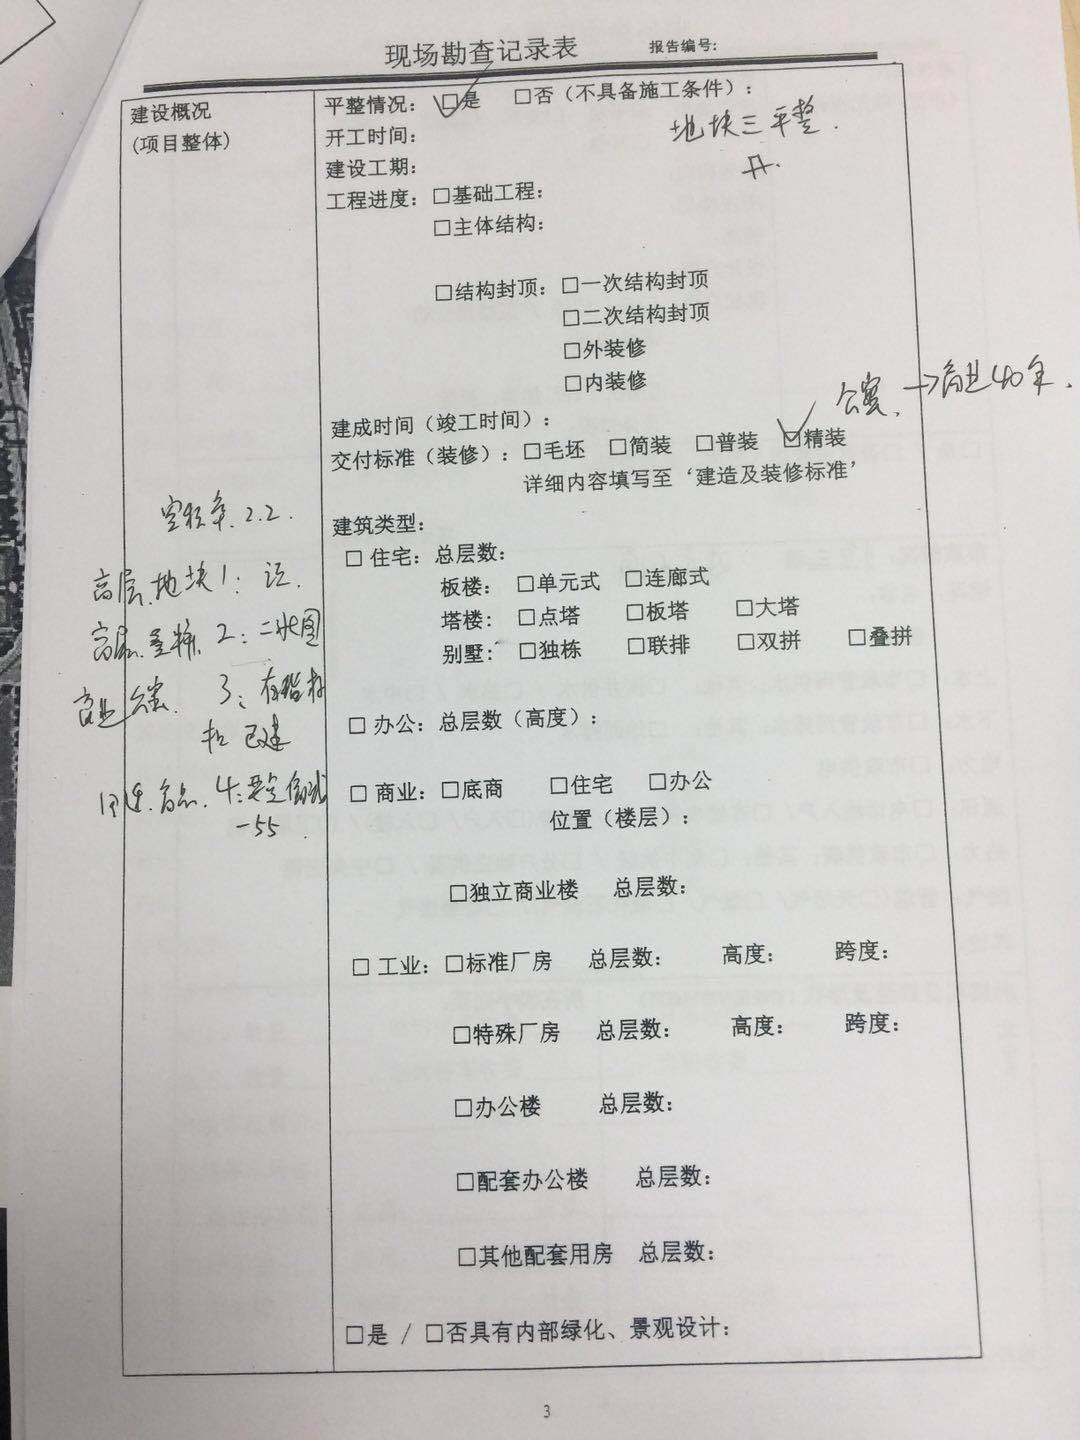 现场勘查记录表 报告编号:
建设概况
(项目整体)
平整情况: □是 □否(不具备施工条件):
地块三平整.
开工时间:
建设工期:
工程进度: □基础工程:
□主体结构:
□结构封顶: □一次结构封顶
□二次结构封顶
□外装修
□内装修
公寓. →商业40年.
建成时间(竣工时间):
交付标准(装修): □毛坯 □简装 □普装 □精装
详细内容填写至‘建造及装修标准’
容积率.2.2.
建筑类型:
□ 住宅: 总层数:
板楼: □单元式 □连廊式
塔楼: □点塔 □板塔 □大塔
别墅: □独栋 □联排 □双拼 □叠拼
高层.地块1:
高层. 2:
商业公寓. 3:
已建
4:
-55
□ 办公: 总层数(高度):
□ 商业: □底商 □住宅 □办公
位置(楼层):
□独立商业楼 总层数:
□ 工业: □标准厂房 总层数: 高度: 跨度:
□特殊厂房 总层数: 高度: 跨度:
□办公楼 总层数:
□配套办公楼 总层数:
□其他配套用房 总层数:
□是 / □否具有内部绿化、景观设计:
3